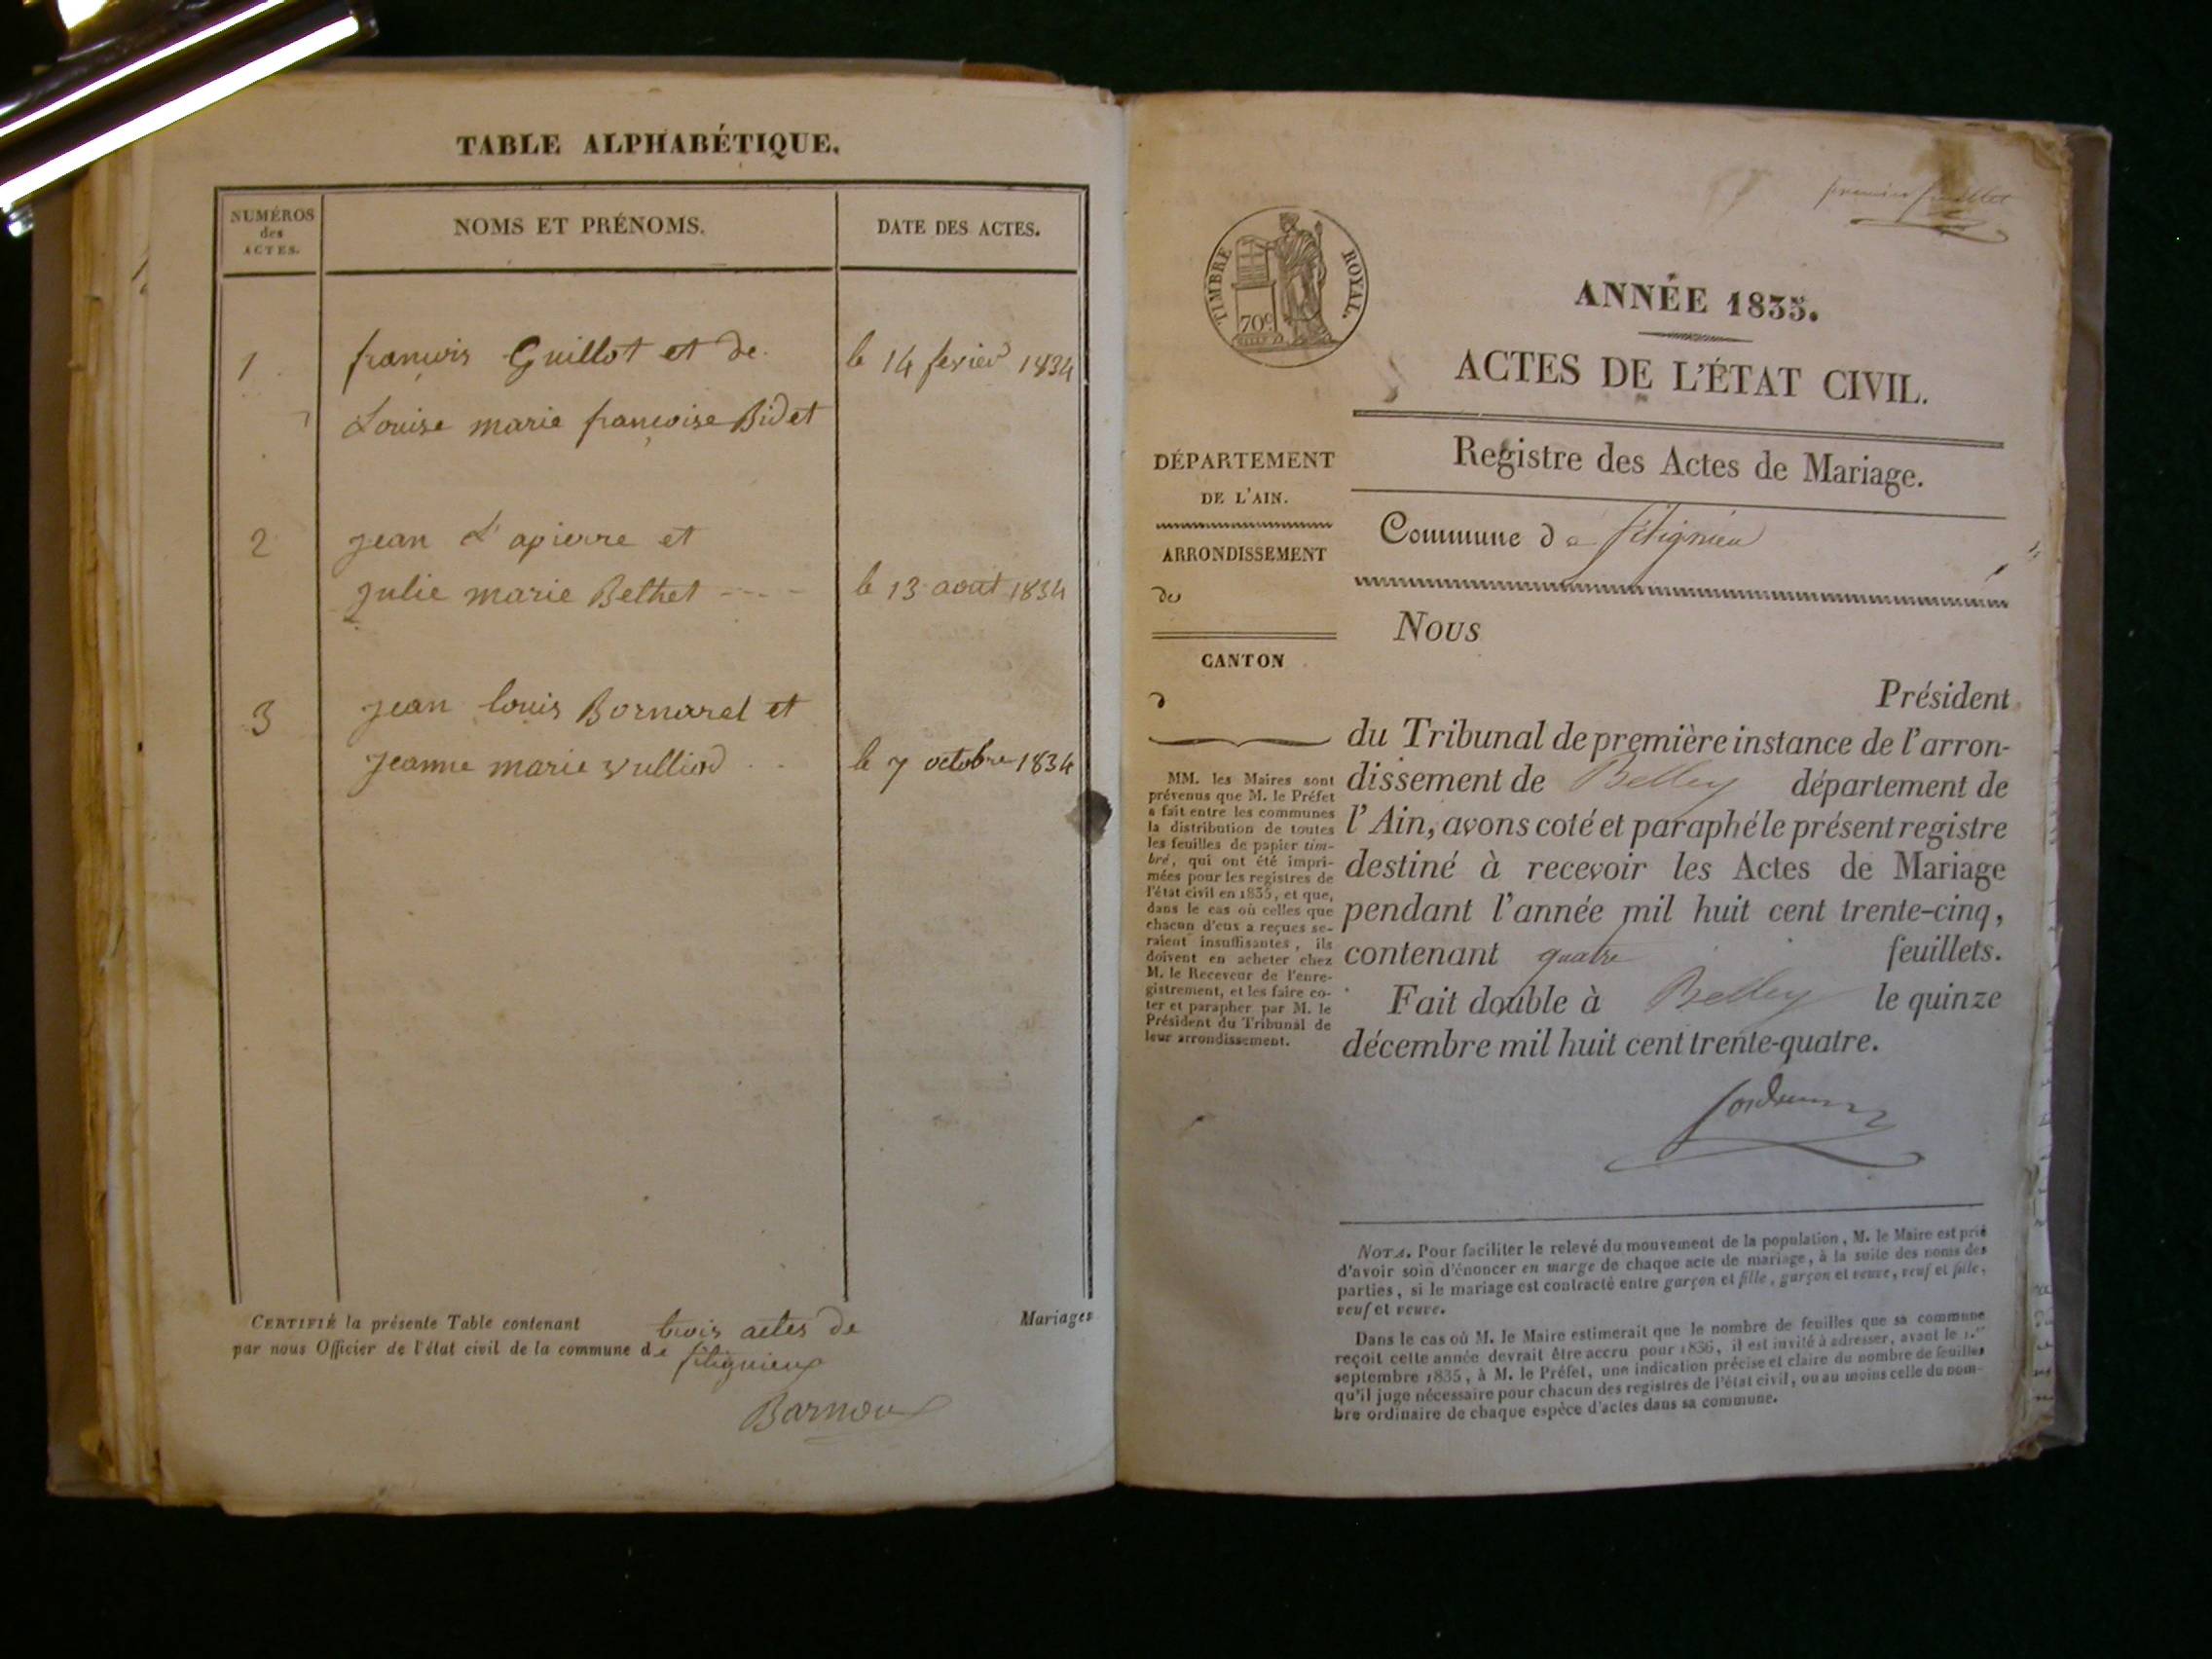 TABLE ALPHABÉTIQUE.
NUMÉROS
des
ACTES.
NOMS ET PRÉNOMS.
DATE DES ACTES.
1
françois Guillot et de
le 14 fevier 1834
Louise marie françoise Bidet
2
jean L'apierre et
julie marie Bethet ----
le 13 aout 1834
3
jean louis Bornarel et
jeanne marie vulliod ..
le 7 octobre 1834
CERTIFIÉ la présente Table contenant trois actes de Mariages
par nous Officier de l'état civil de la commune de Silignieux
Barnoux
premier feuillet
TIMBRE ROYAL.
70c
ANNÉE 1835.
ACTES DE L'ÉTAT CIVIL.
Registre des Actes de Mariage.
DÉPARTEMENT
DE L'AIN.
ARRONDISSEMENT
de
CANTON
d
MM. les Maires sont
prévenus que M. le Préfet
a fait entre les communes
la distribution de toutes
les feuilles de papier tim-
bré, qui ont été impri-
mées pour les registres de
l'état civil en 1835, et que,
dans le cas où celles que
chacun d'eux a reçues se-
raient insuffisantes, ils
doivent en acheter chez
M. le Receveur de l'enre-
gistrement, et les faire co-
ter et parapher par M. le
Président du Tribunal de
leur arrondissement.
Commune de Silignieu
Nous
Président
du Tribunal de première instance de l'arron-
dissement de Belley département de
l'Ain, avons coté et paraphé le présent registre
destiné à recevoir les Actes de Mariage
pendant l'année mil huit cent trente-cinq,
contenant quatre feuillets.
Fait double à Belley le quinze
décembre mil huit cent trente-quatre.
NOTA. Pour faciliter le relevé du mouvement de la population, M. le Maire est prié
d'avoir soin d'énoncer en marge de chaque acte de mariage, à la suite des noms des
parties, si le mariage est contracté entre garçon et fille, garçon et veuve, veuf et fille,
veuf et veuve.
Dans le cas où M. le Maire estimerait que le nombre de feuilles que sa commune
reçoit cette année devrait être accru pour 1836, il est invité à adresser, avant le 1.er
septembre 1835, à M. le Préfet, une indication précise et claire du nombre de feuilles
qu'il juge nécessaire pour chacun des registres de l'état civil, ou au moins celle du nom-
bre ordinaire de chaque espèce d'actes dans sa commune.